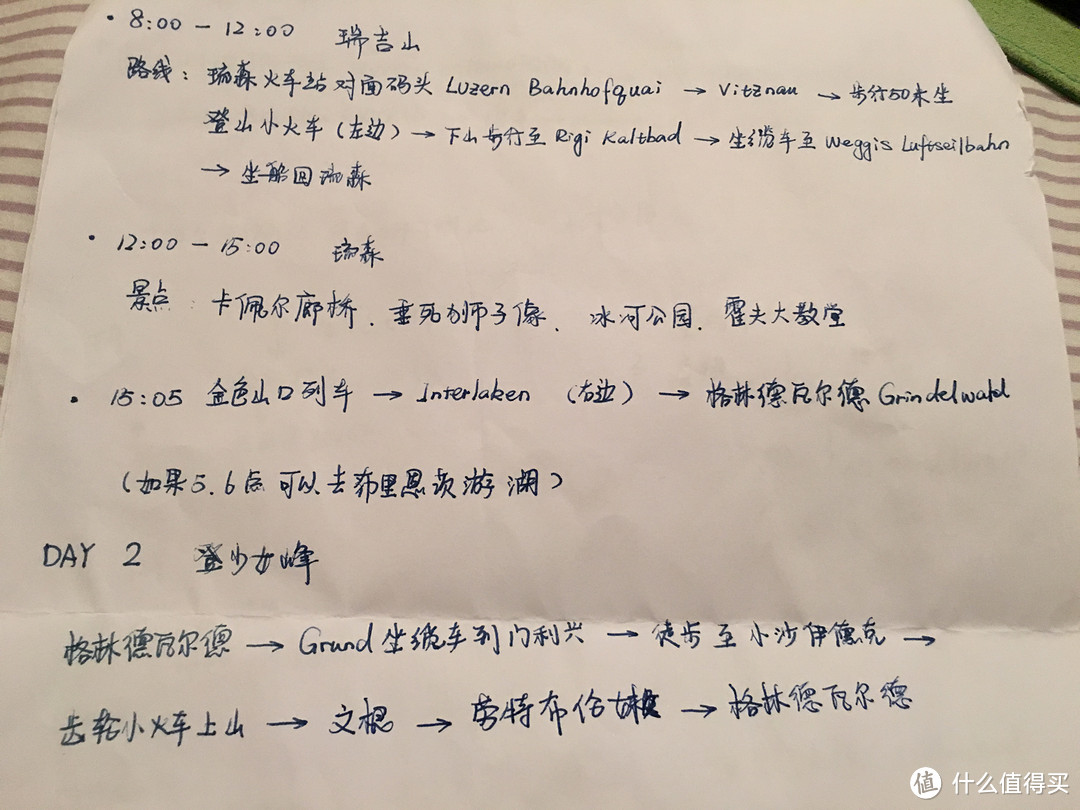 · 8:00 — 12:00 瑞吉山
路线: 琉森火车站对面码头 Luzern Bahnhofquai → Vitznau → 步行50米坐
登山小火车 (左边) → 下山步行至 Rigi Kaltbad → 坐缆车至 Weggis Luftseilbahn
→ 坐船回琉森
· 12:00 — 15:00 琉森
景点: 卡佩尔廊桥、垂死的狮子像、冰河公园、霍夫大教堂
· 15:05 金色山口列车 → Interlaken (右边) → 格林德瓦尔德 Grindelwald
(如果5.6点可以去布里恩茨游湖)
DAY 2 登少女峰
格林德瓦尔德 → Grund 坐缆车到门利兴 → 徒步至小沙伊德克 →
齿轮小火车上山 → 文根 → 劳特布伦 → 格林德瓦尔德
值 什么值得买